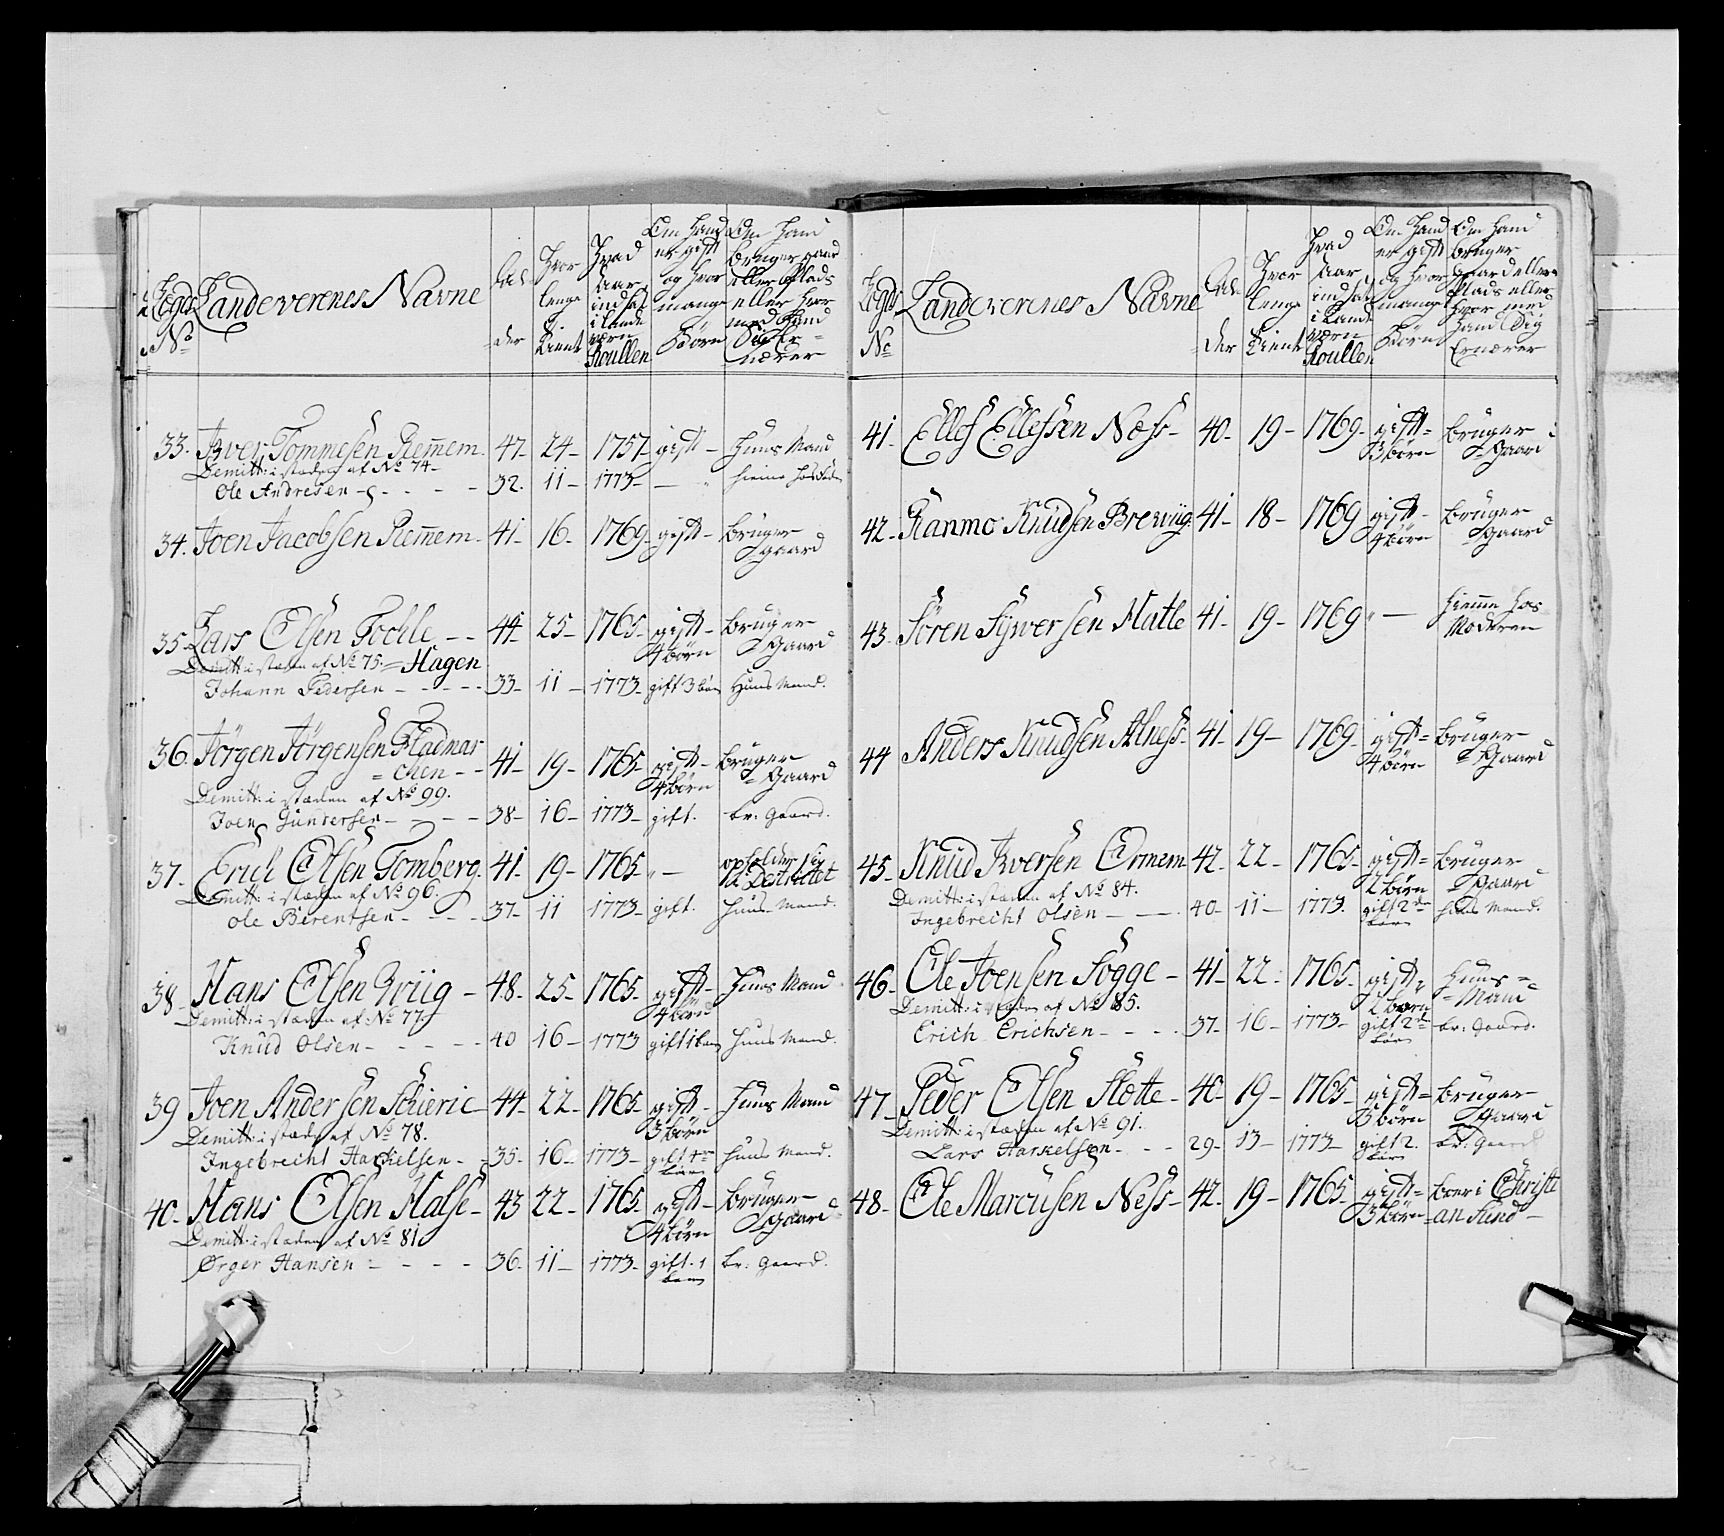 Legds No Landeverenes Navne Al-der Hvor lenge tient Hvad Aar indsat i Lande værn Roullen Om hand er gift og hvor mange Börn Om hand bruger gaard eller Plads eller hvor med hand Sig Er=nærer
33. Iver Tommesen Remmem. 47- 24- 1757- gift- Huus Mand
Demitt: i stæden af No 74-
Ole Andresen - - - - 32. 11- 1773- - hieme hos
34. Joen Jacobsen Remmem- 41- 16- 1769- gift- bruger
gaard
35. Lars Olsen Tochle - - 44- 25- 1765- gift- bruger
4 börn Gaard
Demitt: i stæden af No 75. = Hagen
Johann Pedersen - - - - 33- 11- 1773- gift 3 börn Huus Mand.
36. Jörgen Jörgensen Fladmar
= chen - - 41- 19- 1765- gift- bruger
4 börn = Gaard
Demitt: i stæden af No 99.
Joen Gundersen - - - - 38- 16- 1773- gift. br: Gaard.
37. Erich Olsen Tomberg. 41- 19- 1765 " - opholder sig
ud Destrictet
Demitt: i stæden af No 96.
Ole Berentsen - - - - 37- 11 1773- gift. Huus Mand.
38- Hans Olsen Wiig - 48- 25- 1765- gift- Huus Mand
4 börn
Demitt: i stæden af No 77.
Knud Olsen - - - - 40 16- 1773 gift 1 barn Huus Mand.
39 Joen Andersen Schierie- 44- 22- 1765- gift- Huus Mand
3 börn
Demitt: i stæden af No 78.
Ingebrecht Haskelsen - - 35- 16- 1773- gift Huus Mand.
40- Hans Olsen Halse- 43 22- 1765- gift- bruger
4 börn Gaard
Demitt: i stæden af No 81.
Ørger Hansen - - - - 36- 11- 1773- gift. 1 br: Gaard.
barn
Legds No Landeverenes Navne Al-der Hvor lenge tient Hvad Aar indsat i Lande værn Roullen Om Hand er gift og hvor mange Börn Om hand bruger Gaard eller Plads eller hvor med hand Sig Ernærer
41- Ellef Ellefsen Næss- 40- 19- 1769- gift= bruger
3 börn = Gaard
42- Ranmo Knudsen Brewiig- 41- 18- 1769 gift- bruger
4 börn = Gaard
43- Sören Sywersen Hatle 41- 19- 1769 " - hieme hos
Moderen
44 Anders Knudsen Alness- 41- 19- 1769- gift= bruger
4 börn = Gaard
45- Knud Iversen Ormem 42- 22- 1765- gift= bruger
2 börn Gaard
Demitt: i stæden af No 84.
Ingebrecht Olsen - - - 40- 11- 1773. gift 2 Huus Mand.
börn
46- Ole Joensen Sogge- 41- 22- 1765- gift- Huus=
2 börn = Mand
Demitt: i stæden af No 85.
Erich Erichsen - - - - 37- 16- 1773- gift 2 br: Gaard.
börn
47- Peder Olsen Slotte- 40- 19- 1765- gift= bruger
3 börn Gaard
Demitt: i stæden af No 91.
Lars Haskelsen - - - 29- 13- 1773- gift 2. br: Gaard
börn
48- Ole Marcusen Ness- 42- 19- 1765- gift= boer i Christi
3 börn = an Sund-